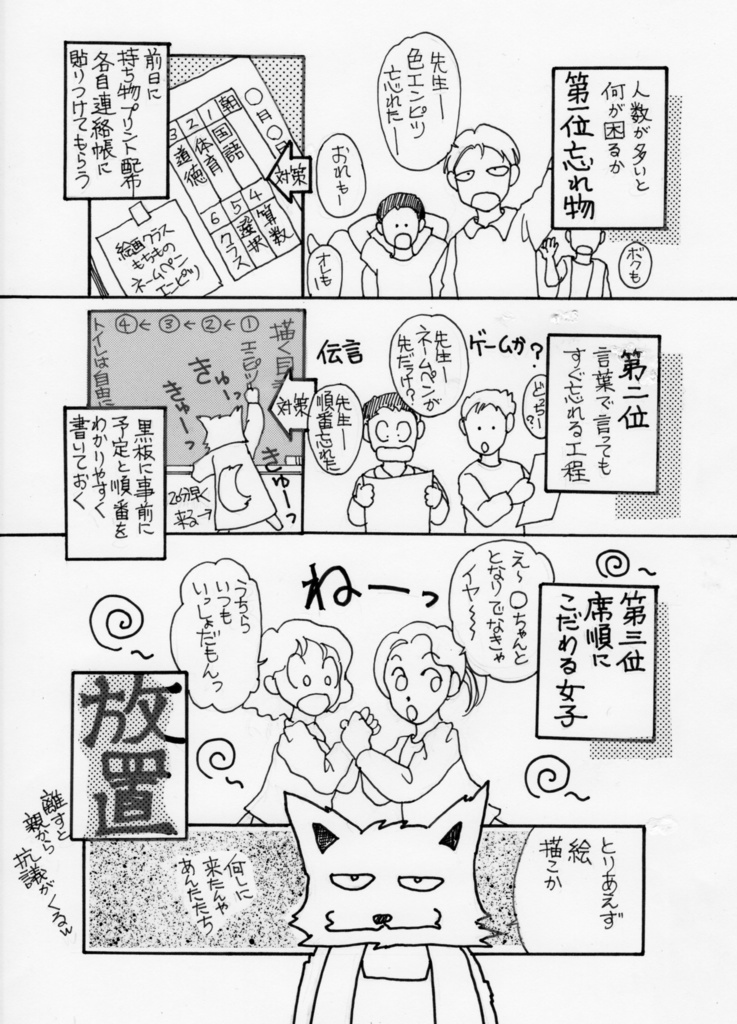 人数が多いと
何が困るか
第一位忘れ物
先生ー
色エンピツ
忘れたー
おれもー
オレー
ボクも
対策
前日に
持ち物プリント配布
各自連絡帳に
貼りつけてもらう
○月○
朝
1国語
2体育
3道徳
4算数
5選択
6クラス
絵画クラス
もちもの
ネームペン
エンピツ
第二位
言葉で言っても
すぐ忘れる工程
ゲームか?
伝言
どっちー?
先生ー
ネームペンが
先だっけ?
先生ー
順番忘れた
対策
描く
①←②←③←④
エンピツ
トイレは自由に
きゅーっ
きゅーっ
きゅーっ
20分早く
来る→
黒板に事前に
予定と順番を
わかりやすく
書いておく
第三位
席順に
こだわる女子
え〜○ちゃんと
となりでなきゃ
イヤ〜〜
ねーっ
うちら
いつも
いっしょだもんっ
放置
離すと
親から
抗議がくるw
とりあえず
絵
描こか
何しに
来たんや
あんたたち